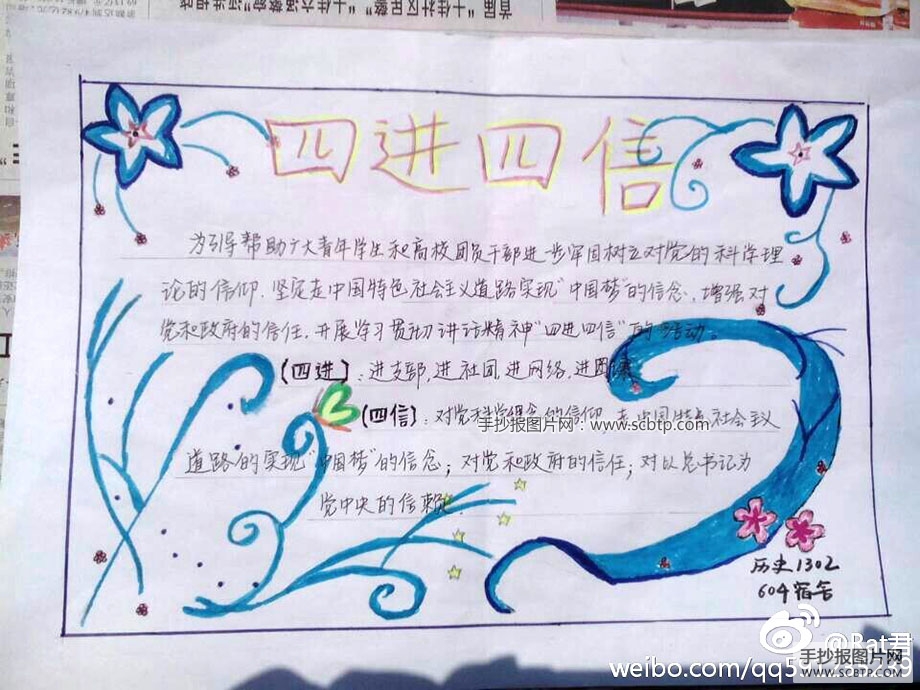 四进四信
为引导帮助广大青年学生和高校团员干部进一步牢固树立对党的科学理
论的信仰，坚定走中国特色社会主义道路实现"中国梦"的信念，增强对
党和政府的信任，开展学习贯彻讲话精神"四进四信"的活动。
(四进)：进支部，进社团，进网络，进团课
(四信)：对党科学理念的信仰，走中国特色社会主义
手抄报图片网：www.scbtp.com
道路的实现"中国梦"的信念；对党和政府的信任；对以总书记为
党中央的信赖。
历史1302
604宿舍
@Bat君
weibo.com/qq5
手抄报图片网
WWW.SCBTP.COM